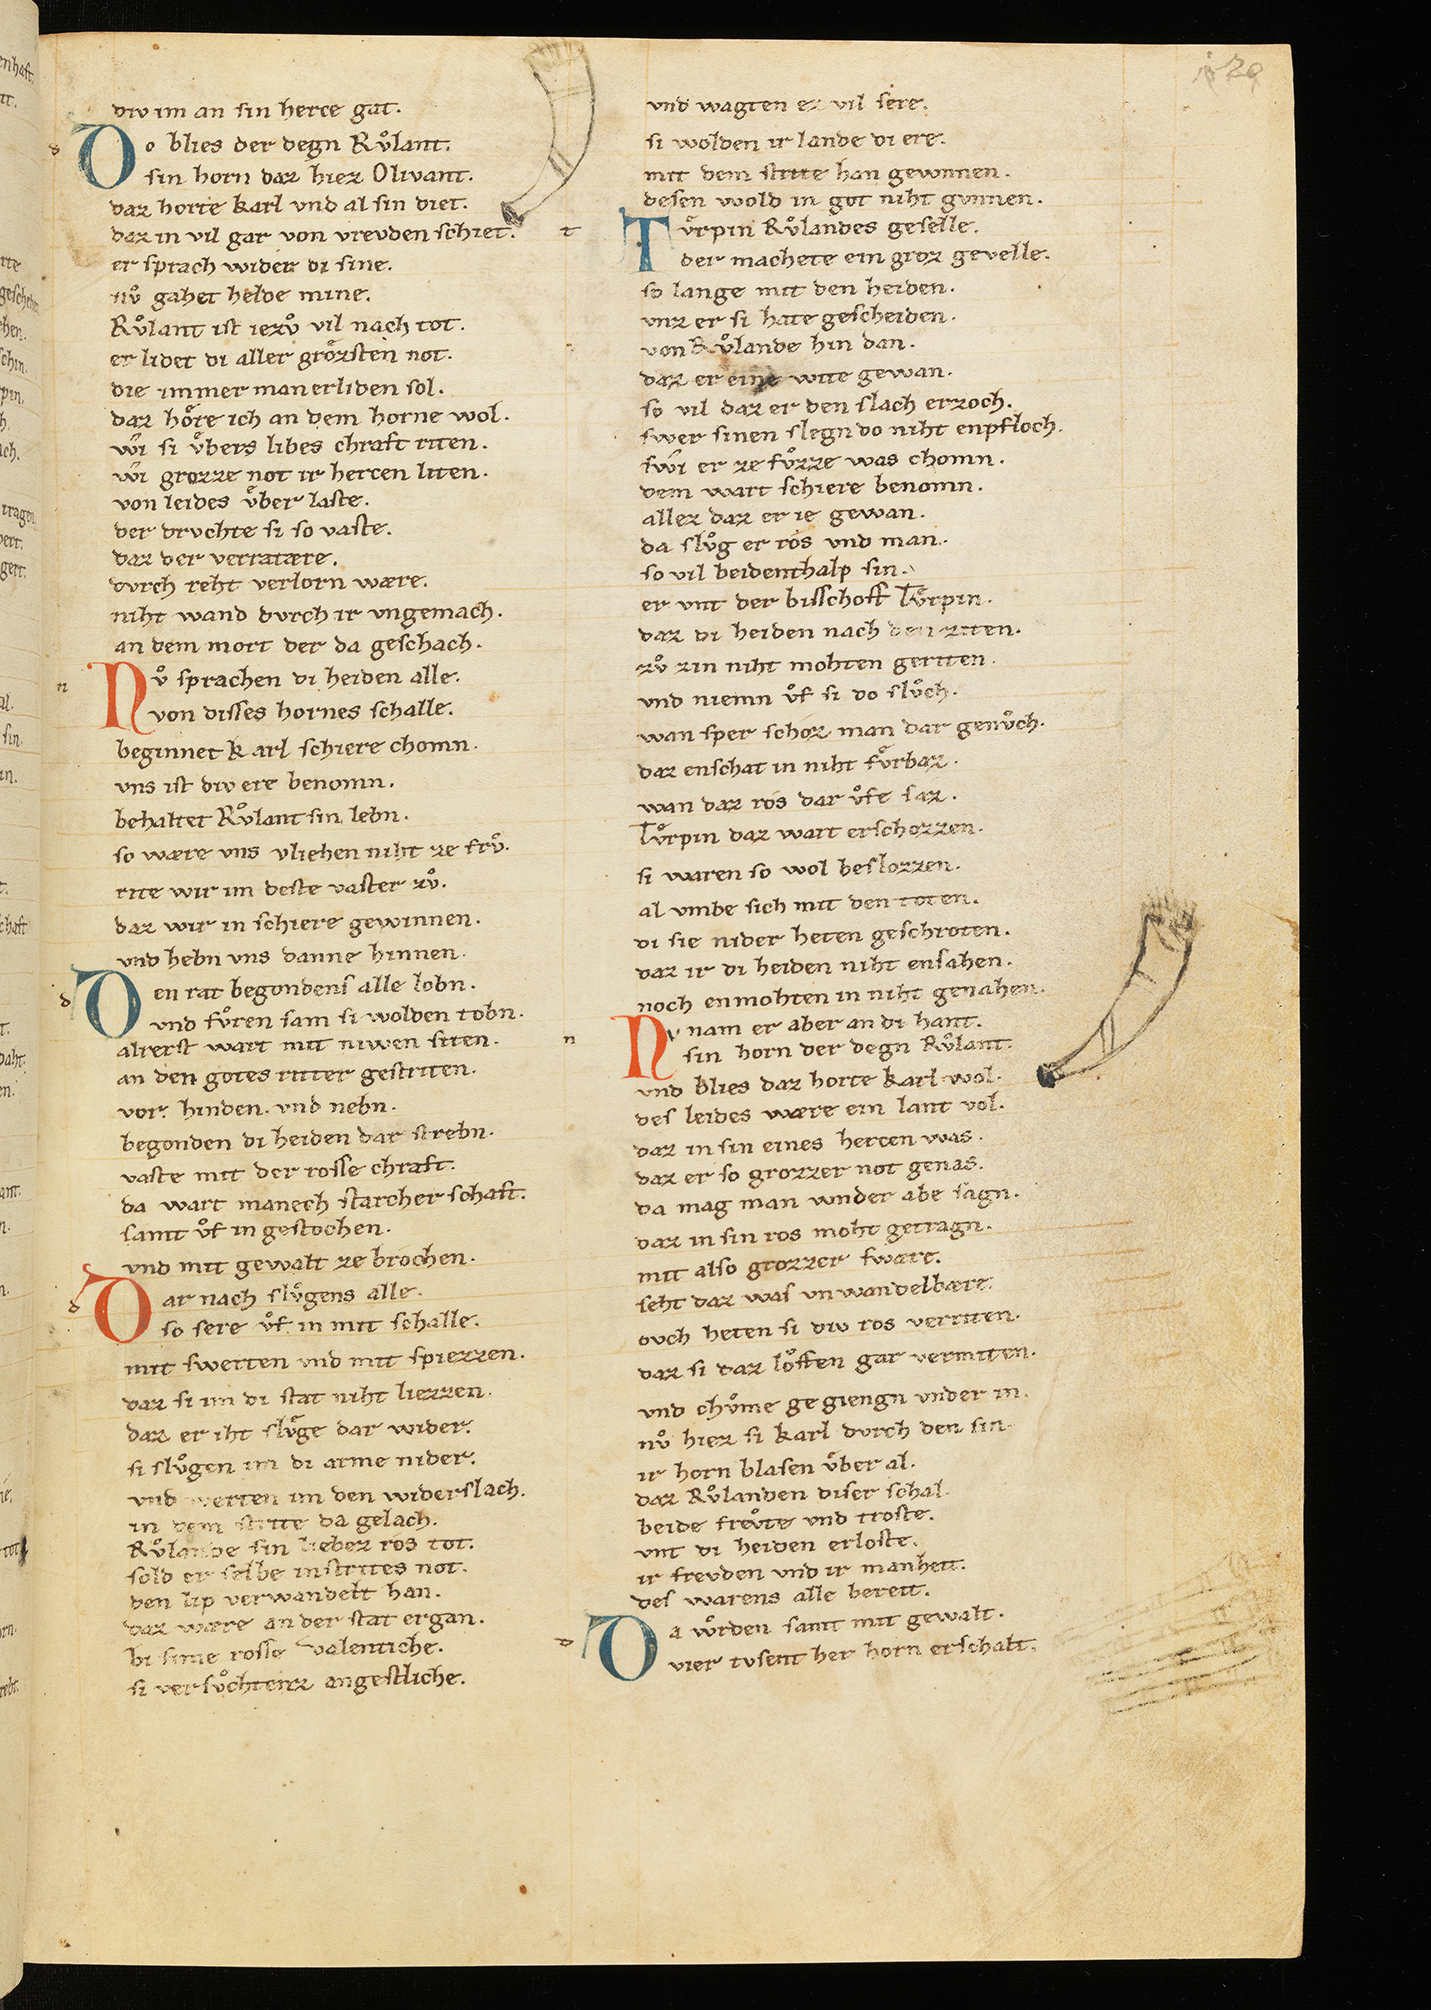 div im an sin herce gat.
Do blies der degn Růlant.
sin horn daz hiez Olivant.
daz horte karl vnd al sin diet.
daz in vil gar von vrevden schiet.
er sprach wider di sine.
nů gahet helde mine.
Růlant ist iezů vil nach tot.
er lidet di aller grözsten not.
die immer man erliden sol.
daz höre ich an dem horne wol.
wi si vͤbers libes chraft riten.
wi grozze not ir hercen liten.
von leides vͤber laste.
der drvchte si so vaste.
daz der verratære.
dvrch reht verlorn wære.
niht wand dvrch ir vngemach.
an dem mort der da geschach.
Nů sprachen di heiden alle.
von disses hornes schalle.
beginnet karl schiere chomn.
vns ist div ere benomn.
behaltet Růlant sin lebn.
so wære vns vliehen niht ze frů.
rite wir im deste vaster zů.
daz wir in schiere gewinnen.
vnd hebn vns danne hinnen.
Den rat begondens alle lobn.
vnd fůren sam si wolden tobn.
alrerst wart mit niwen siten.
an den gotes ritter gestriten.
vor. hinden. vnd nebn.
begonden di heiden dar strebn.
vaste mit der rosse chraft.
da wart manech starcher schaft.
samt vͦf in gestochen.
vnd mit gewalt ze brochen.
Dar nach slůgens alle.
so sere vͦf in mit schalle.
mit swerten vnd mit spiezzen.
daz si im di stat niht liezzen.
daz er iht slůge dar wider.
si slůgen im di arme nider.
vnd werten im den widerslach.
in dem strite da gelach.
Růlande sin liebez ros tot.
sold er selbe in strites not.
den lip verwandelt han.
daz wære an der stat ergan.
bi sime rosse valentiche.
si versůchtenz angestliche.
vnd wagten ez vil sere.
si wolden ir lande di ere.
mit dem strite han gewnnen.
desen wold in got niht gvnnen.
Tvͤrpin Růlandes geselle.
der machete ein groz gevelle.
so lange mit den heiden.
vnz er si hate gescheiden.
von Růlande hin dan.
daz er eine wite gewan.
so vil daz er den slach erzoch.
swer sinen slegn do niht enpfloch.
swi er ze fůzze was chomn.
dem wart schiere benomn.
allez daz er ie gewan.
da slůg er ros vnd man.
so vil beidenthalp sin.
er vnt der bisschoff Tvͤrpin.
daz di heiden nach den ziten.
zů zin niht mohten geriten.
vnd niemn vͦf si do slůch.
wan sper schoz man dar genůch.
daz enschat in niht fvͤrbaz.
wan daz ros dar vͦfe saz.
Tvͤrpin daz wart erschozzen.
si waren so wol beslozzen.
al vmbe sich mit den toten.
di sie nider heten geschroten.
daz ir di heiden niht ensahen.
noch enmohten in niht genahen.
Nv nam er aber an di hant.
sin horn der degn Růlant.
vnd blies daz horte karl wol.
des leides wære ein lant vol.
daz in sin eines hercen was.
daz er so grozzer not genas.
da mag man wnder abe sagn.
daz in sin ros moht getragn.
mit also grozzer swære.
seht daz was vnwandelbære.
ovch heten si div ros verriten.
daz si daz löffen gar vermiten.
vnd chůme gegiengn vnder in.
nů hiez si karl dvrch den sin
ir horn blasen vͤber al.
daz Růlanden diser schal.
beide frevͦte vnd troste.
vnt di heiden erloste.
ir frevden vnd ir manheit.
des warens alle bereit.
Da wͦrden samt mit gewalt.
vier tvsent her horn erschalt.